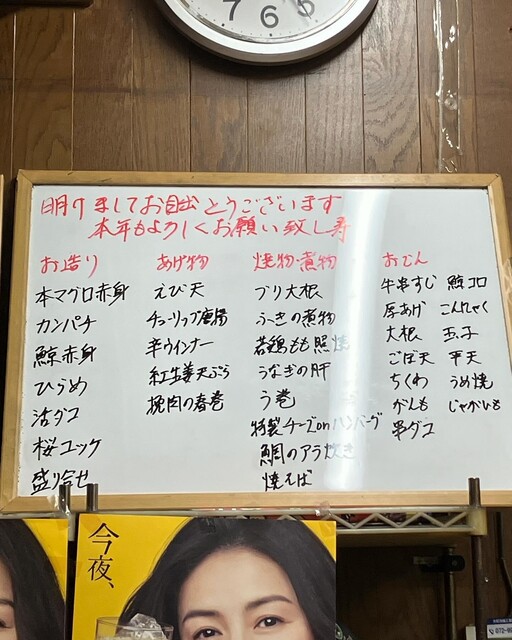 7 6 5
明けましてお目出とうございます
本年もよろしくお願い致し寿
お造り
本マグロ赤身
カンパチ
鯨赤身
ひらめ
活ダコ
桜ユッケ
盛り合せ
あげ物
えび天
チューリップ唐揚
辛ウインナー
紅生姜天ぷら
挽肉の春巻
焼物・煮物
ブリ大根
ふきの煮物
若鶏もも照焼
うなぎの肝
う巻
特製チーズonハンバーグ
鯛のアラ炊き
焼そば
おでん
牛串すじ
厚あげ
大根
ごぼ天
ちくわ
がんも
串ダコ
鯨コロ
こんにゃく
玉子
平天
うめ焼
じゃがいも
今夜、